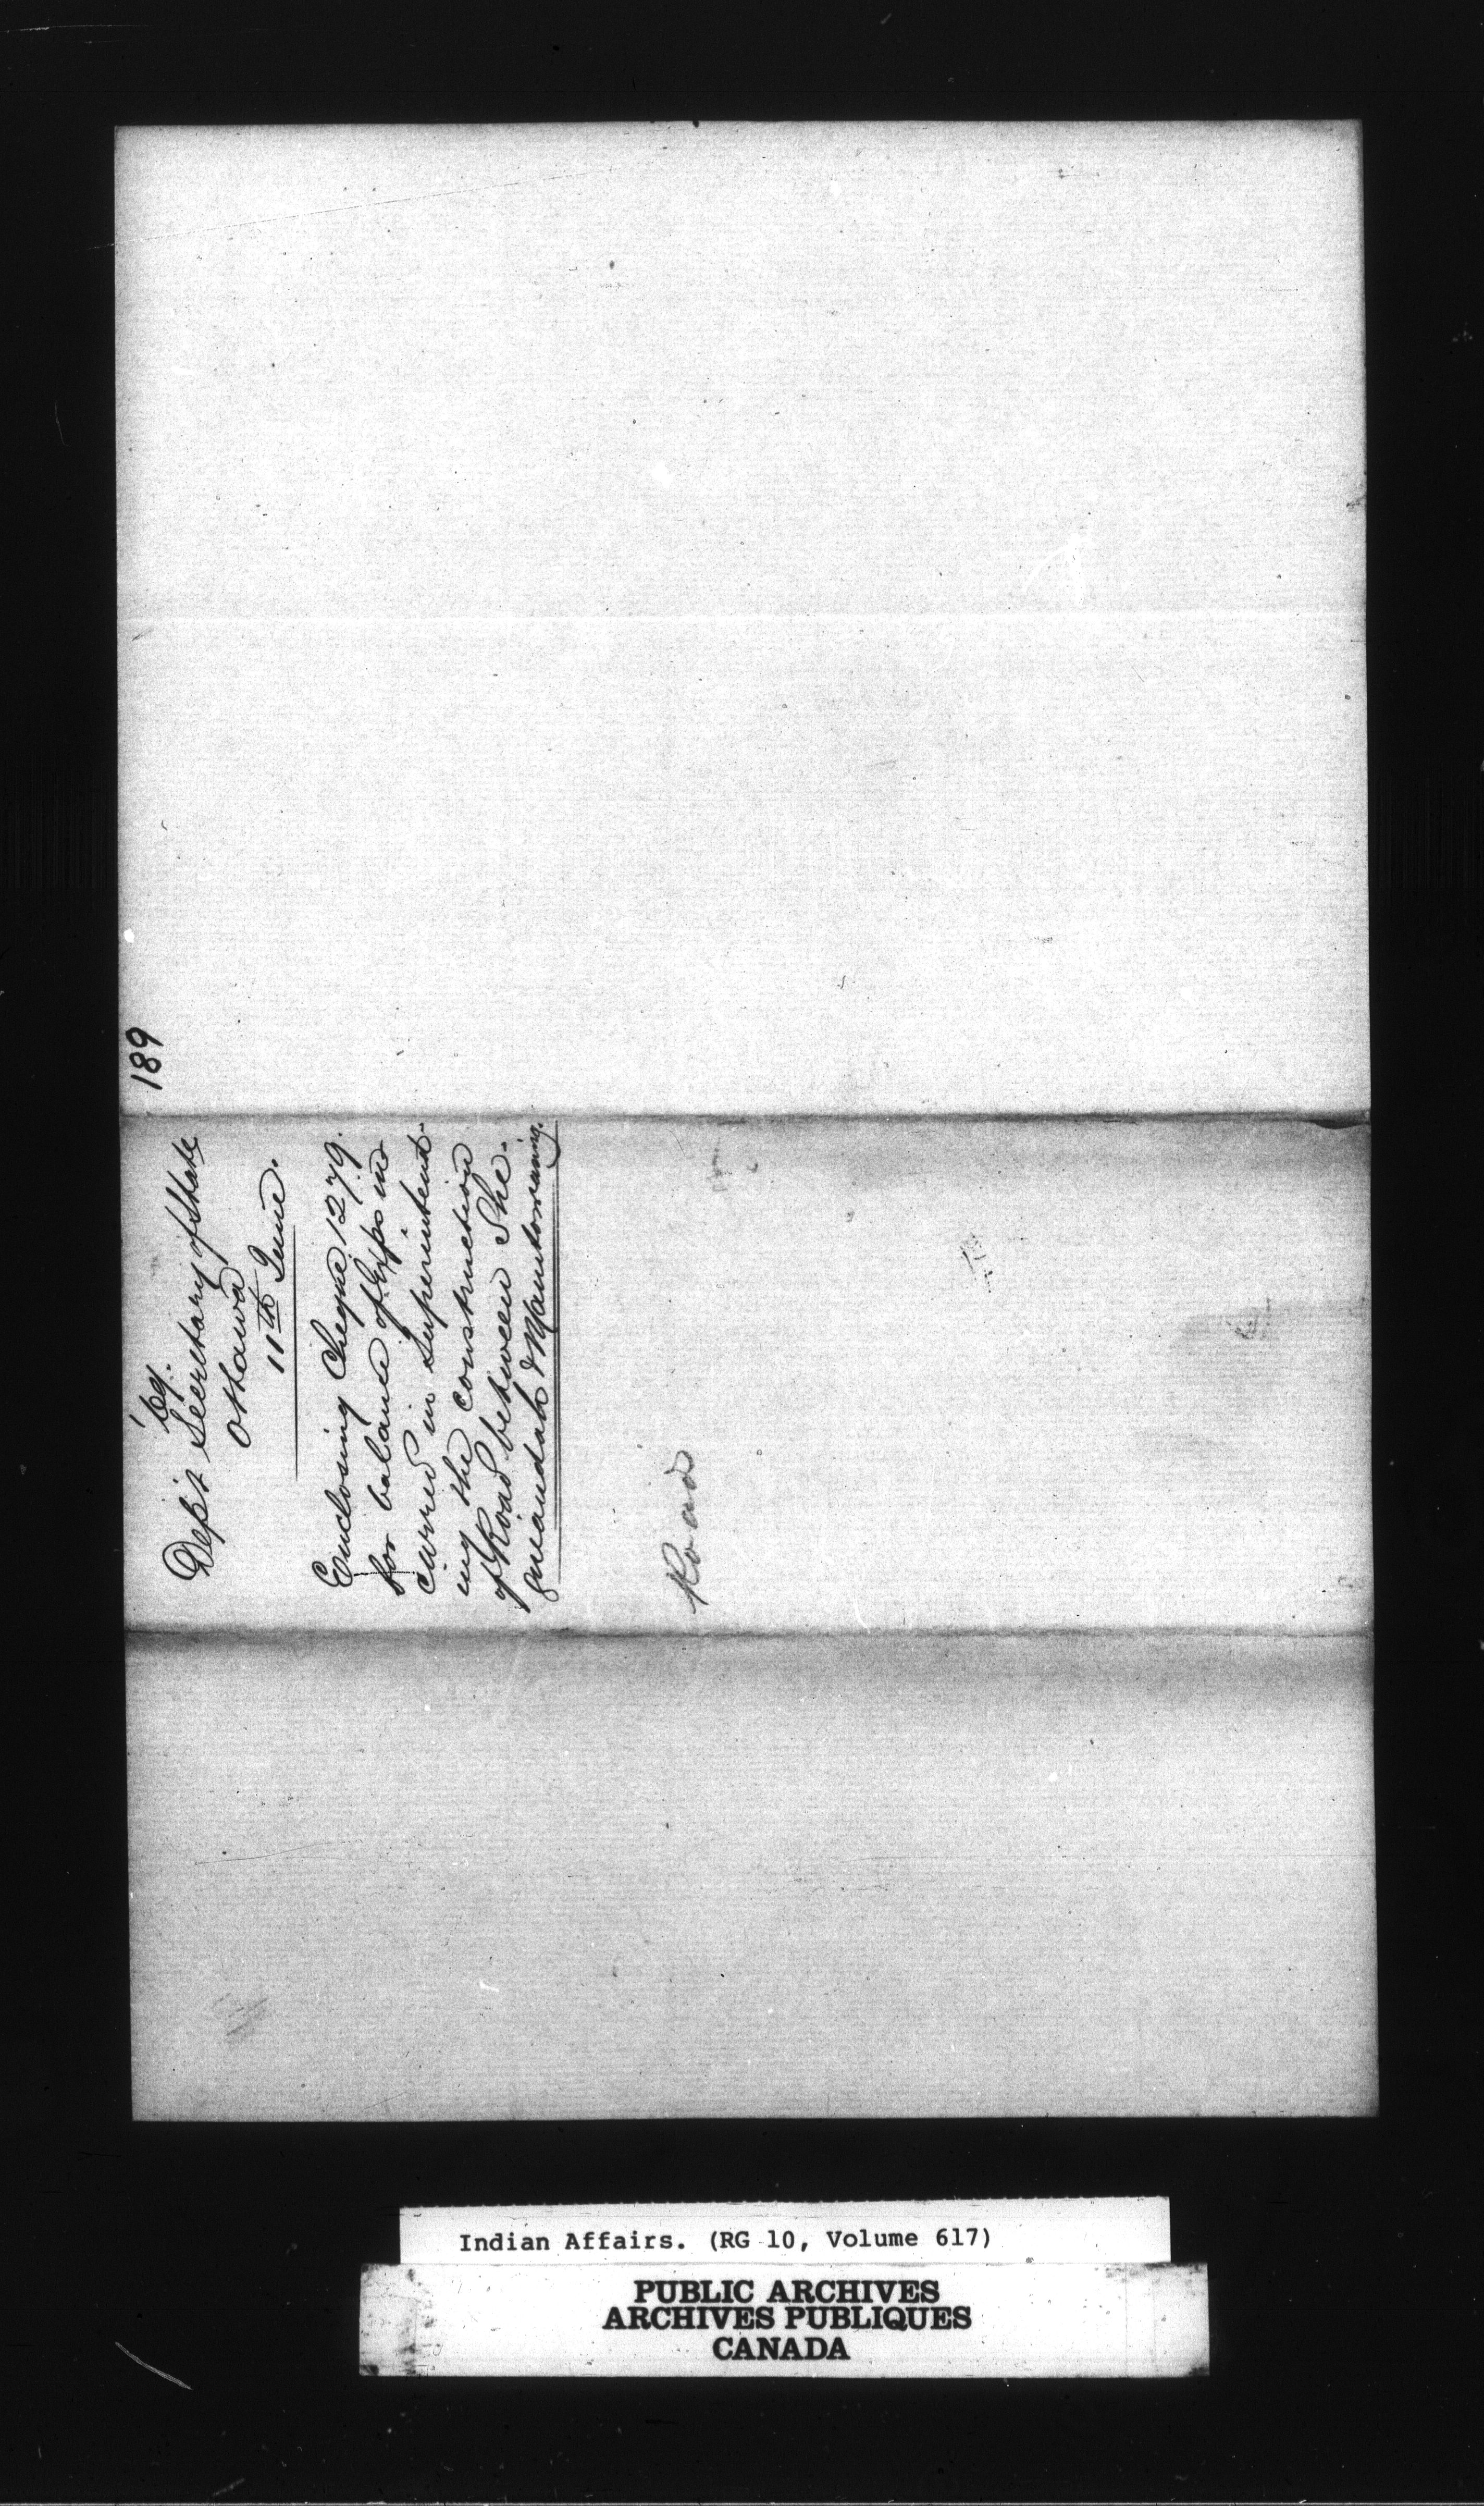 189
'69.
Dep't Secretary of State
Ottawa
11th June.
Enclosing Cheque 1279.
for balance of Exps in
curred in Superintend-
ing the construction
of Road between She-
guiandah & Manitowaning.
Road
Indian Affairs. (RG 10, Volume 617)
PUBLIC ARCHIVES
ARCHIVES PUBLIQUES
CANADA